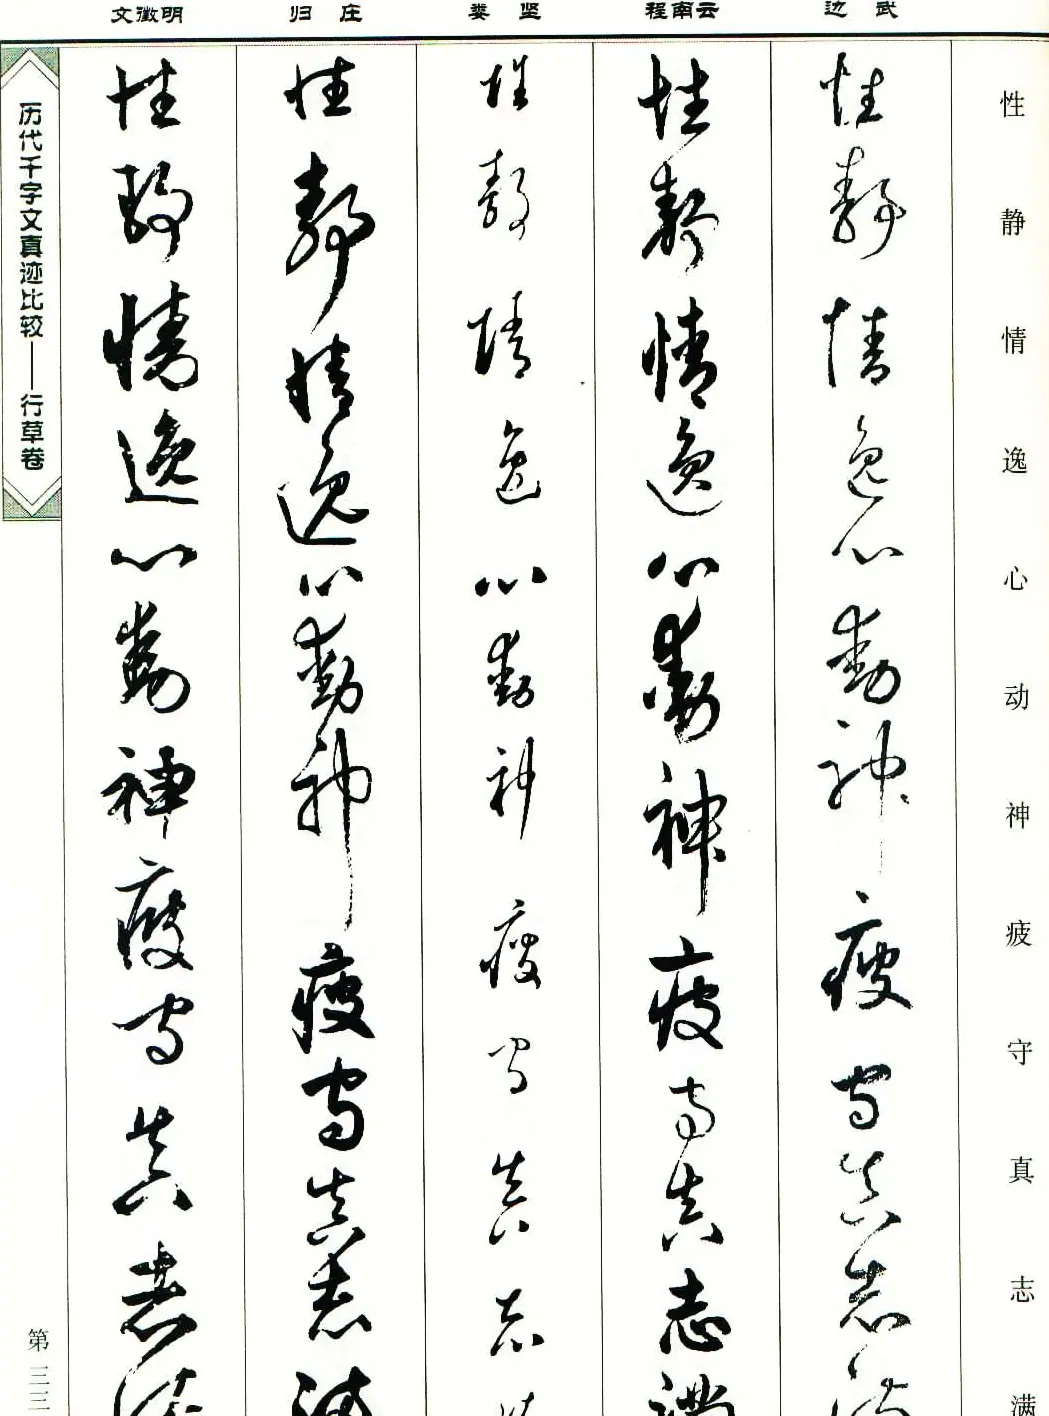 文徵明 归 庄 娄 坚 程南云 边 武
性静情逸心动神疲守真志满
性靜情逸心動神疲守真志
性靜情逸心動神疲守真志
性靜情逸心動神疲守真志
性靜情逸心動神疲守真志
性靜情逸心動神疲守真志
历代千字文真迹比较——行草卷
第三三